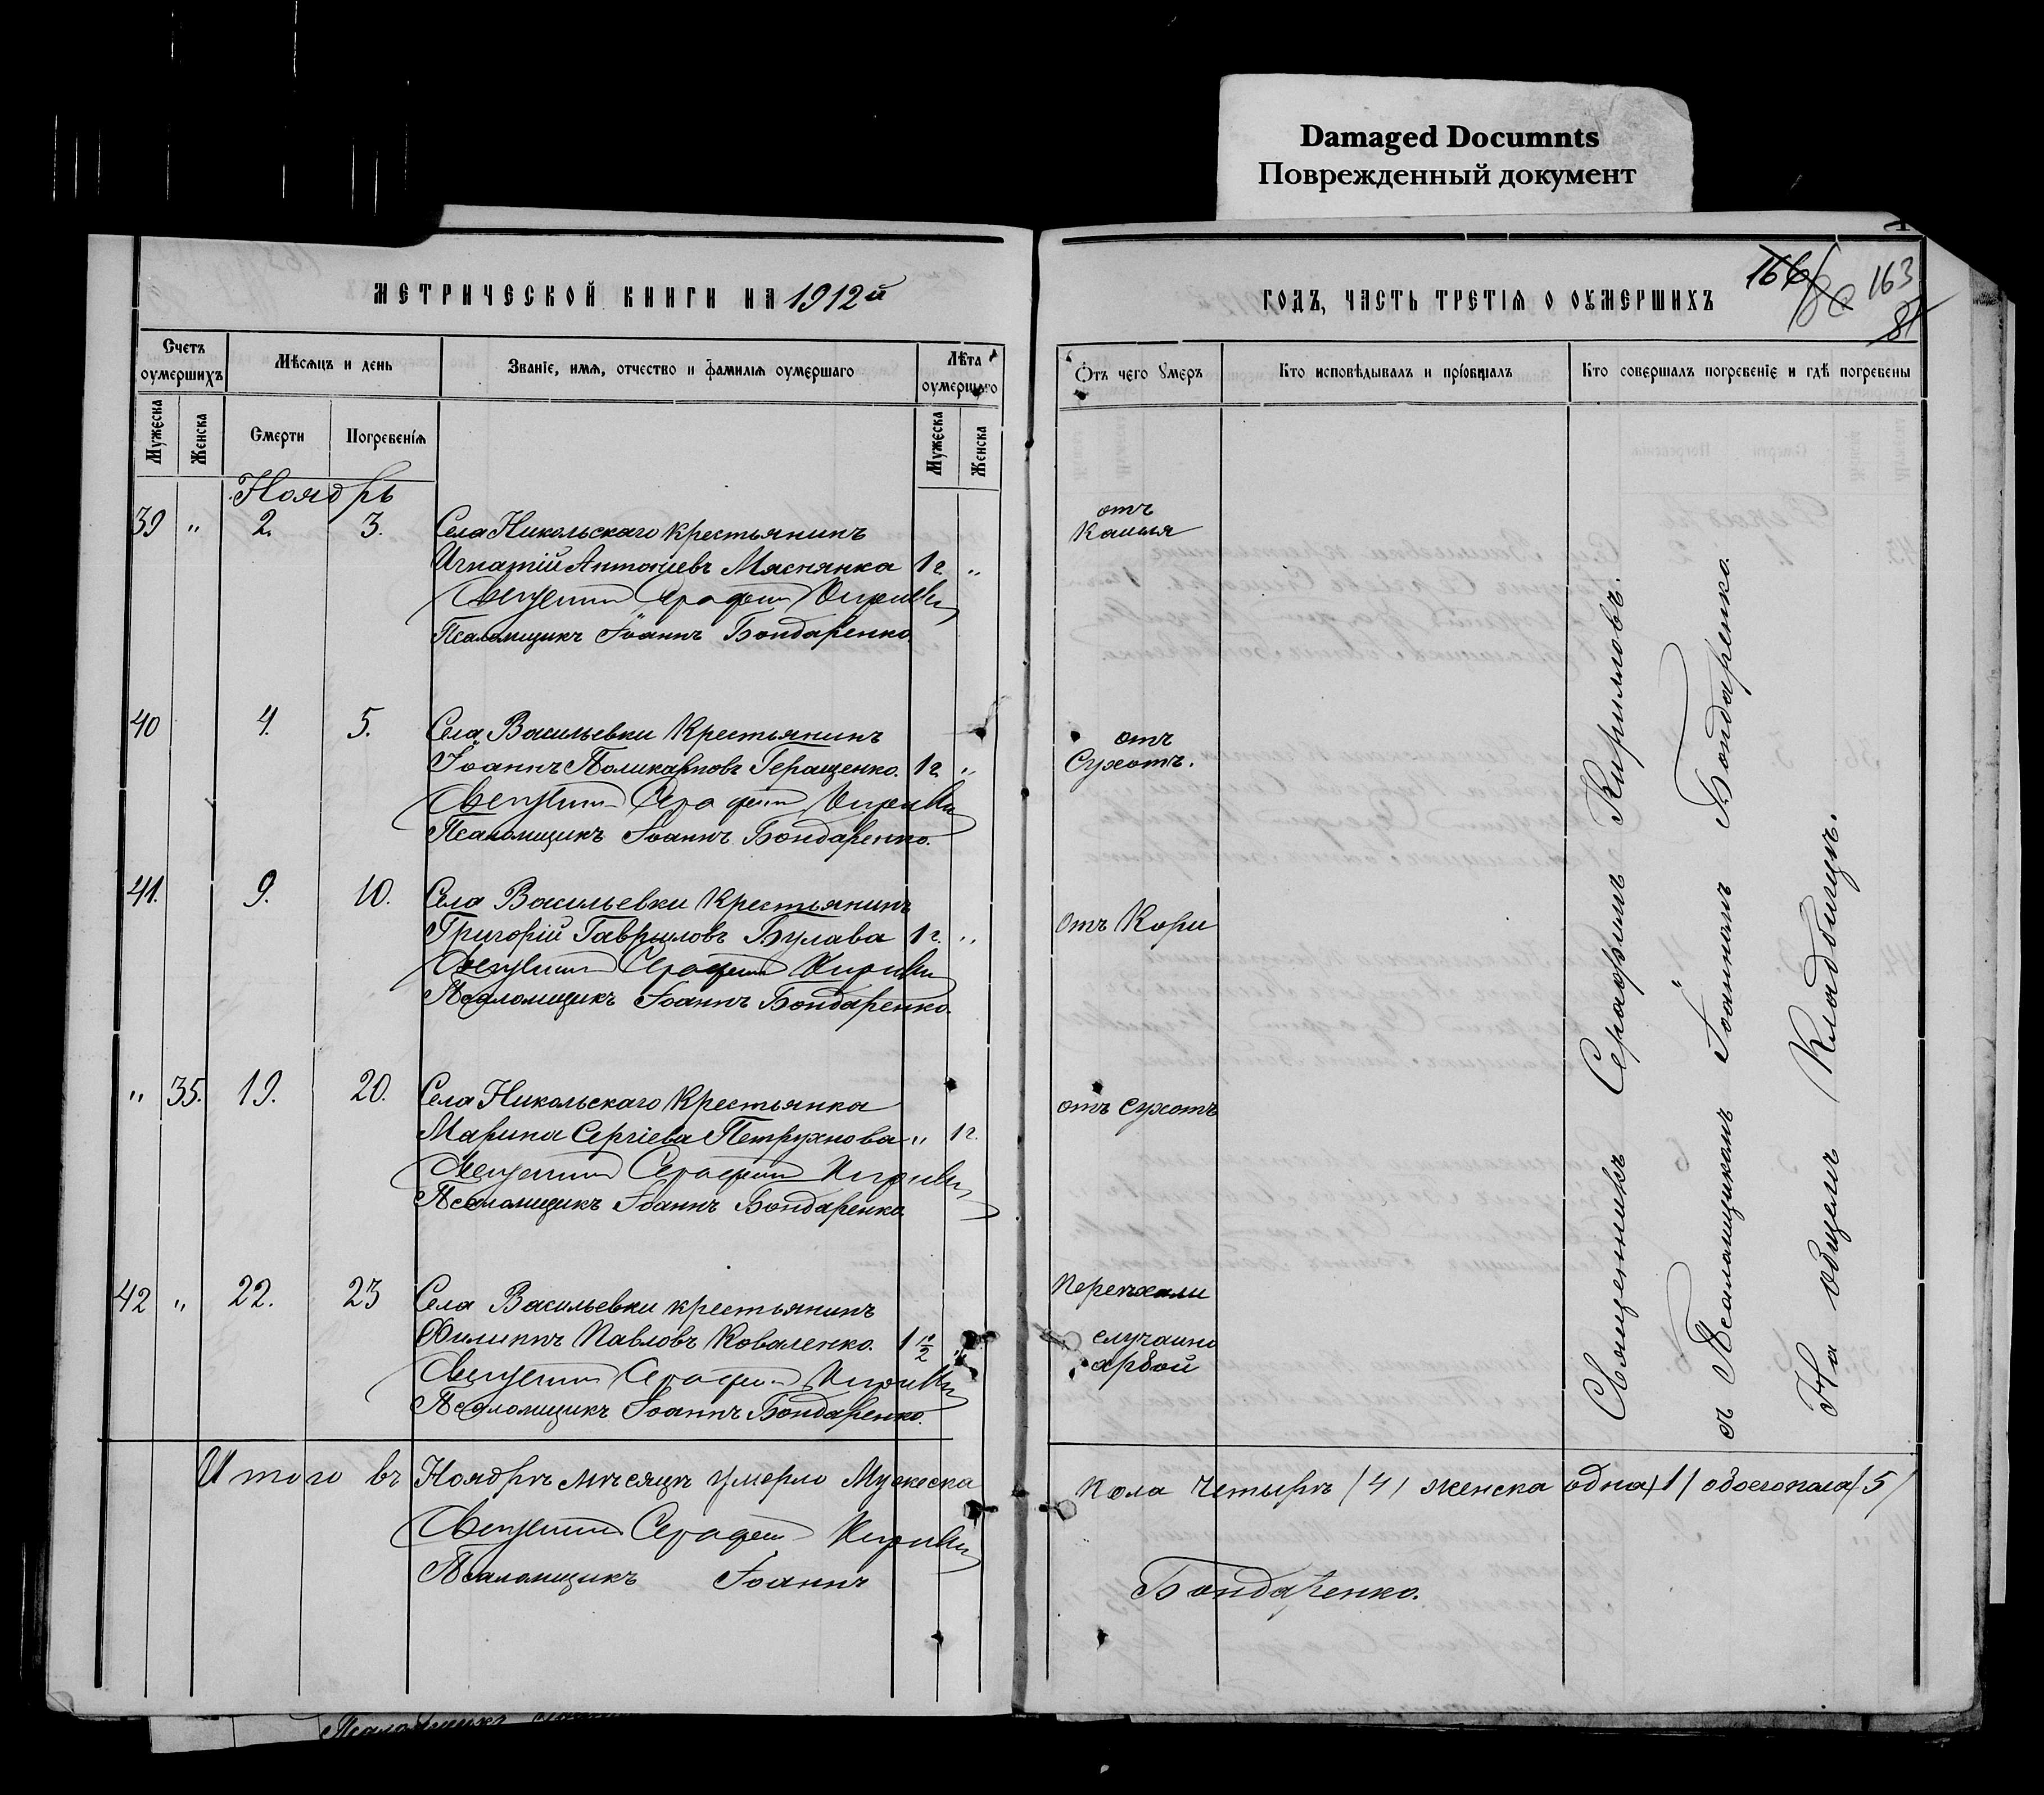 Damaged Documnts
Поврежденный документ
МЕТРИЧЕСКОЙ КНИГИ НА 1912й
Счетъ оумершихъ
Мѣсяцъ и день
Званіе, имя, отчество и фамилія оумершаго
Лѣта оумершаго
Мужеска
Женска
Смерти
Погребенія
Мужеска
Женска
Ноябрь
39 " 2. 3. Села Никольскаго крестьянинъ
Игнатій Антоніевъ Мяснянка 1 г. "
Священникъ Серафимъ Кириловъ
Псаломщикъ Іоаннъ Бондаренко
40 4. 5. Села Васильевки Крестьянинъ
Іоаннъ Поликарповъ Геращенко. 1 г. "
Священникъ Серафимъ Кириловъ
Псаломщикъ Іоаннъ Бондаренко.
41. 9. 10. Села Васильевки Крестьянинъ
Григорій Гавриловъ Булава 1 г. "
Священникъ Серафимъ Кириловъ
Псаломщикъ Іоаннъ Бондаренко.
" 35. 19. 20. Села Никольскаго Крестьянка
Марина Сергіева Петрухнова " 1 г.
Священникъ Серафимъ Кириловъ
Псаломщикъ Іоаннъ Бондаренко.
42 " 22. 23 Села Васильевки крестьянинъ
Филиппъ Павловъ Коваленко. 1 1/2 "
Священникъ Серафимъ Кириловъ
Псаломщикъ Іоаннъ Бондаренко.
Итого въ Ноябрѣ мѣсяцѣ умерло Мужеска
Священникъ Серафимъ Кириловъ
Псаломщикъ Іоаннъ
166 80 163
81
ГОДЪ, ЧАСТЬ ТРЕТІЯ О ОУМЕРШИХЪ
Отъ чего умеръ
Кто исповѣдывалъ и пріобщалъ
Кто совершалъ погребеніе и гдѣ погребены
отъ
Кашля
отъ
Сухотъ.
отъ Кори
отъ сухотъ
Переѣхали
случайно
арбой
Священникъ Серафимъ Кирилловъ.
съ Псаломщикомъ Іоанномъ Бондаренко
На общемъ Кладбищѣ.
пола Четырѣ /4/ женска одна /1/ обоего пола /5/
Бондаренко.